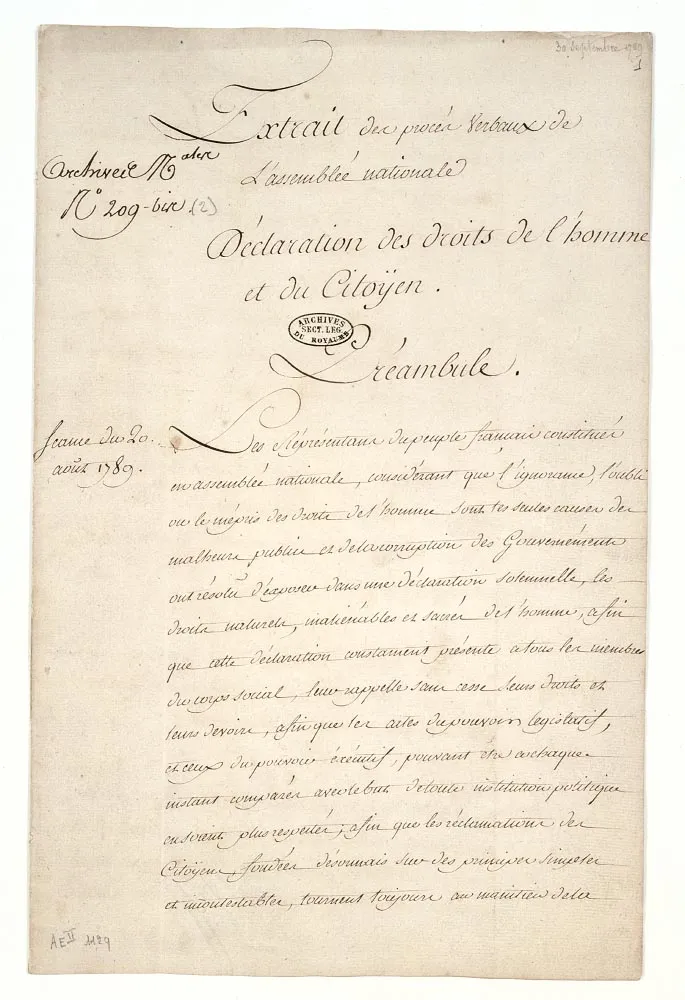 30 septembre 1789
1
Extrait des procès Verbaux de
L'assemblée nationale
archives N^ales
N° 209-bis (2)
Déclaration des droits de l'homme
et du Citoÿen.
ARCHIVES
SECT. LEG.
DU ROYAUME
Préambule.
Seance du 20.
août 1789.
Les Réprésentans du peuple francais constitués
en assemblée nationale, considérant que l'ignorance, l'oubli
ou le mépris des droits de l'homme sont les seules causes des
malheurs publics et de la corruption des Gouvernéments
ont résolu d'exposer dans une déclaration solemnelle, les
droits naturels, inaliénables et sacrés de l'homme, afin
que cette déclaration constament présente a tous les membres
du corps social, leur rappelle sans cesse leurs droits et
leurs devoirs, afin que les actes du pouvoir legislatif,
et ceux du pouvoir éxécutif, pouvant étre a chaque
instant comparés avec le but de toute institution politique
en soient plus respectés; afin que les réclamations des
Citoÿens, fondées désormais sur des principes simples
et incontestables, tournent toujours au maintien de la
AE II 1129